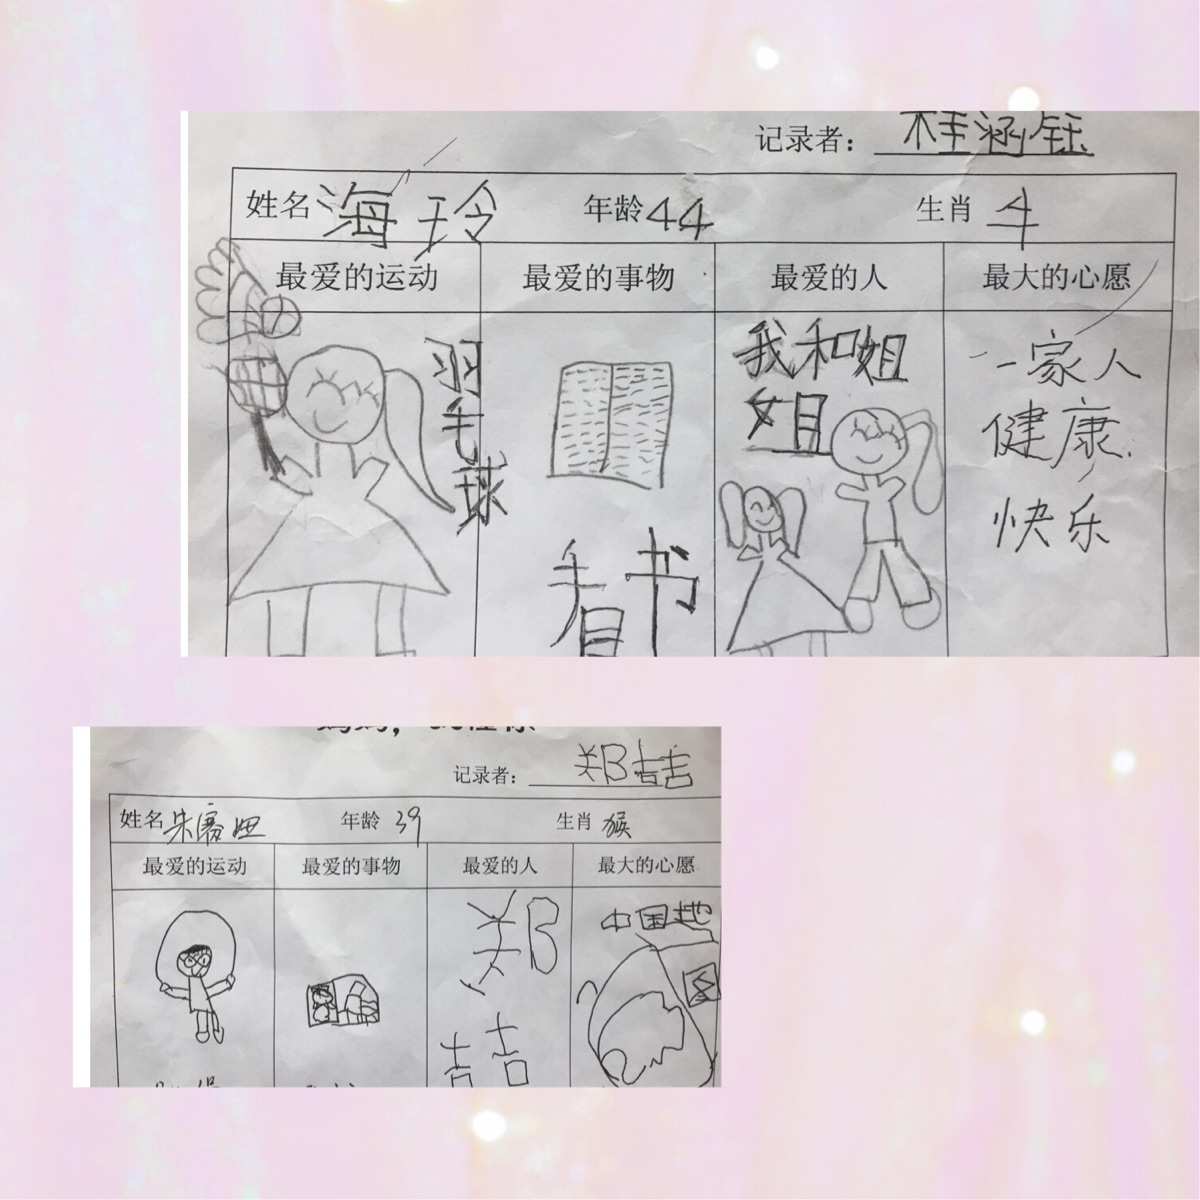 记录者：桂涵钰
姓名 海玲 年龄 44 生肖 牛
最爱的运动 最爱的事物 最爱的人 最大的心愿
羽毛球
看书
我和姐
姐
一家人
健康
快乐
记录者：郑喆
姓名 朱 年龄 39 生肖 猴
最爱的运动 最爱的事物 最爱的人 最大的心愿
郑
喆
中国地
图